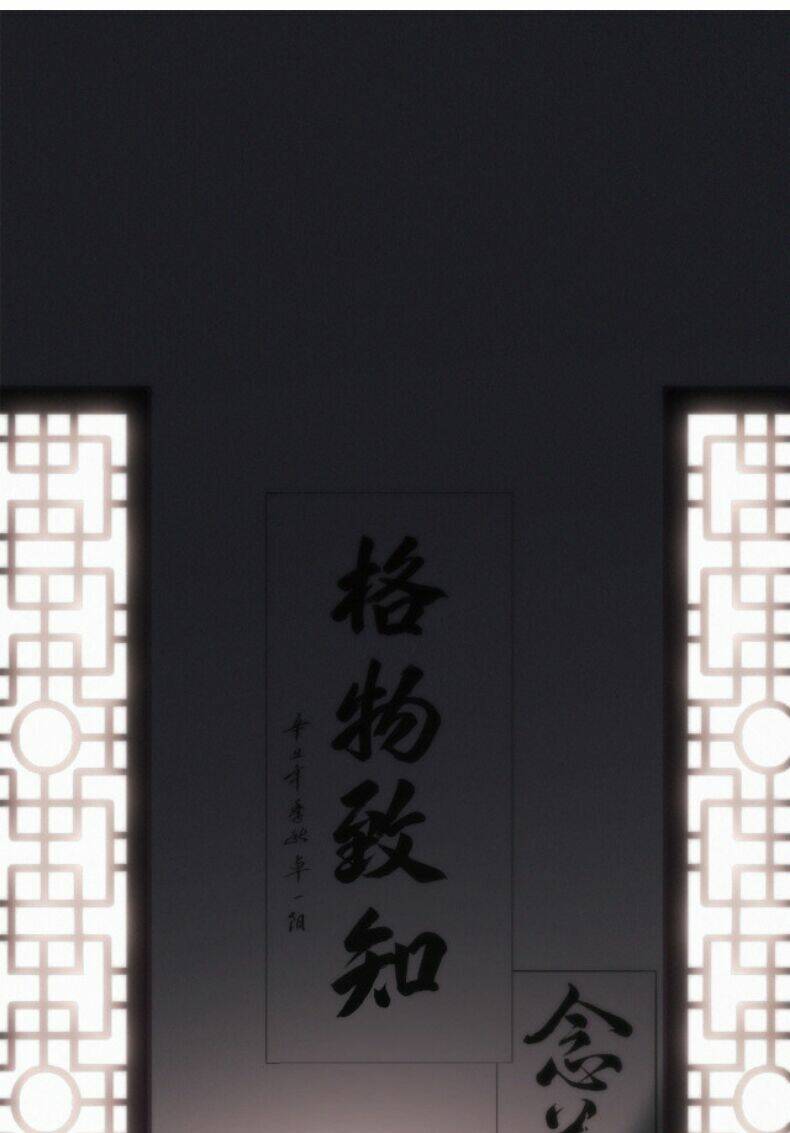 格物致知
辛丑年季秋卓一阳
念